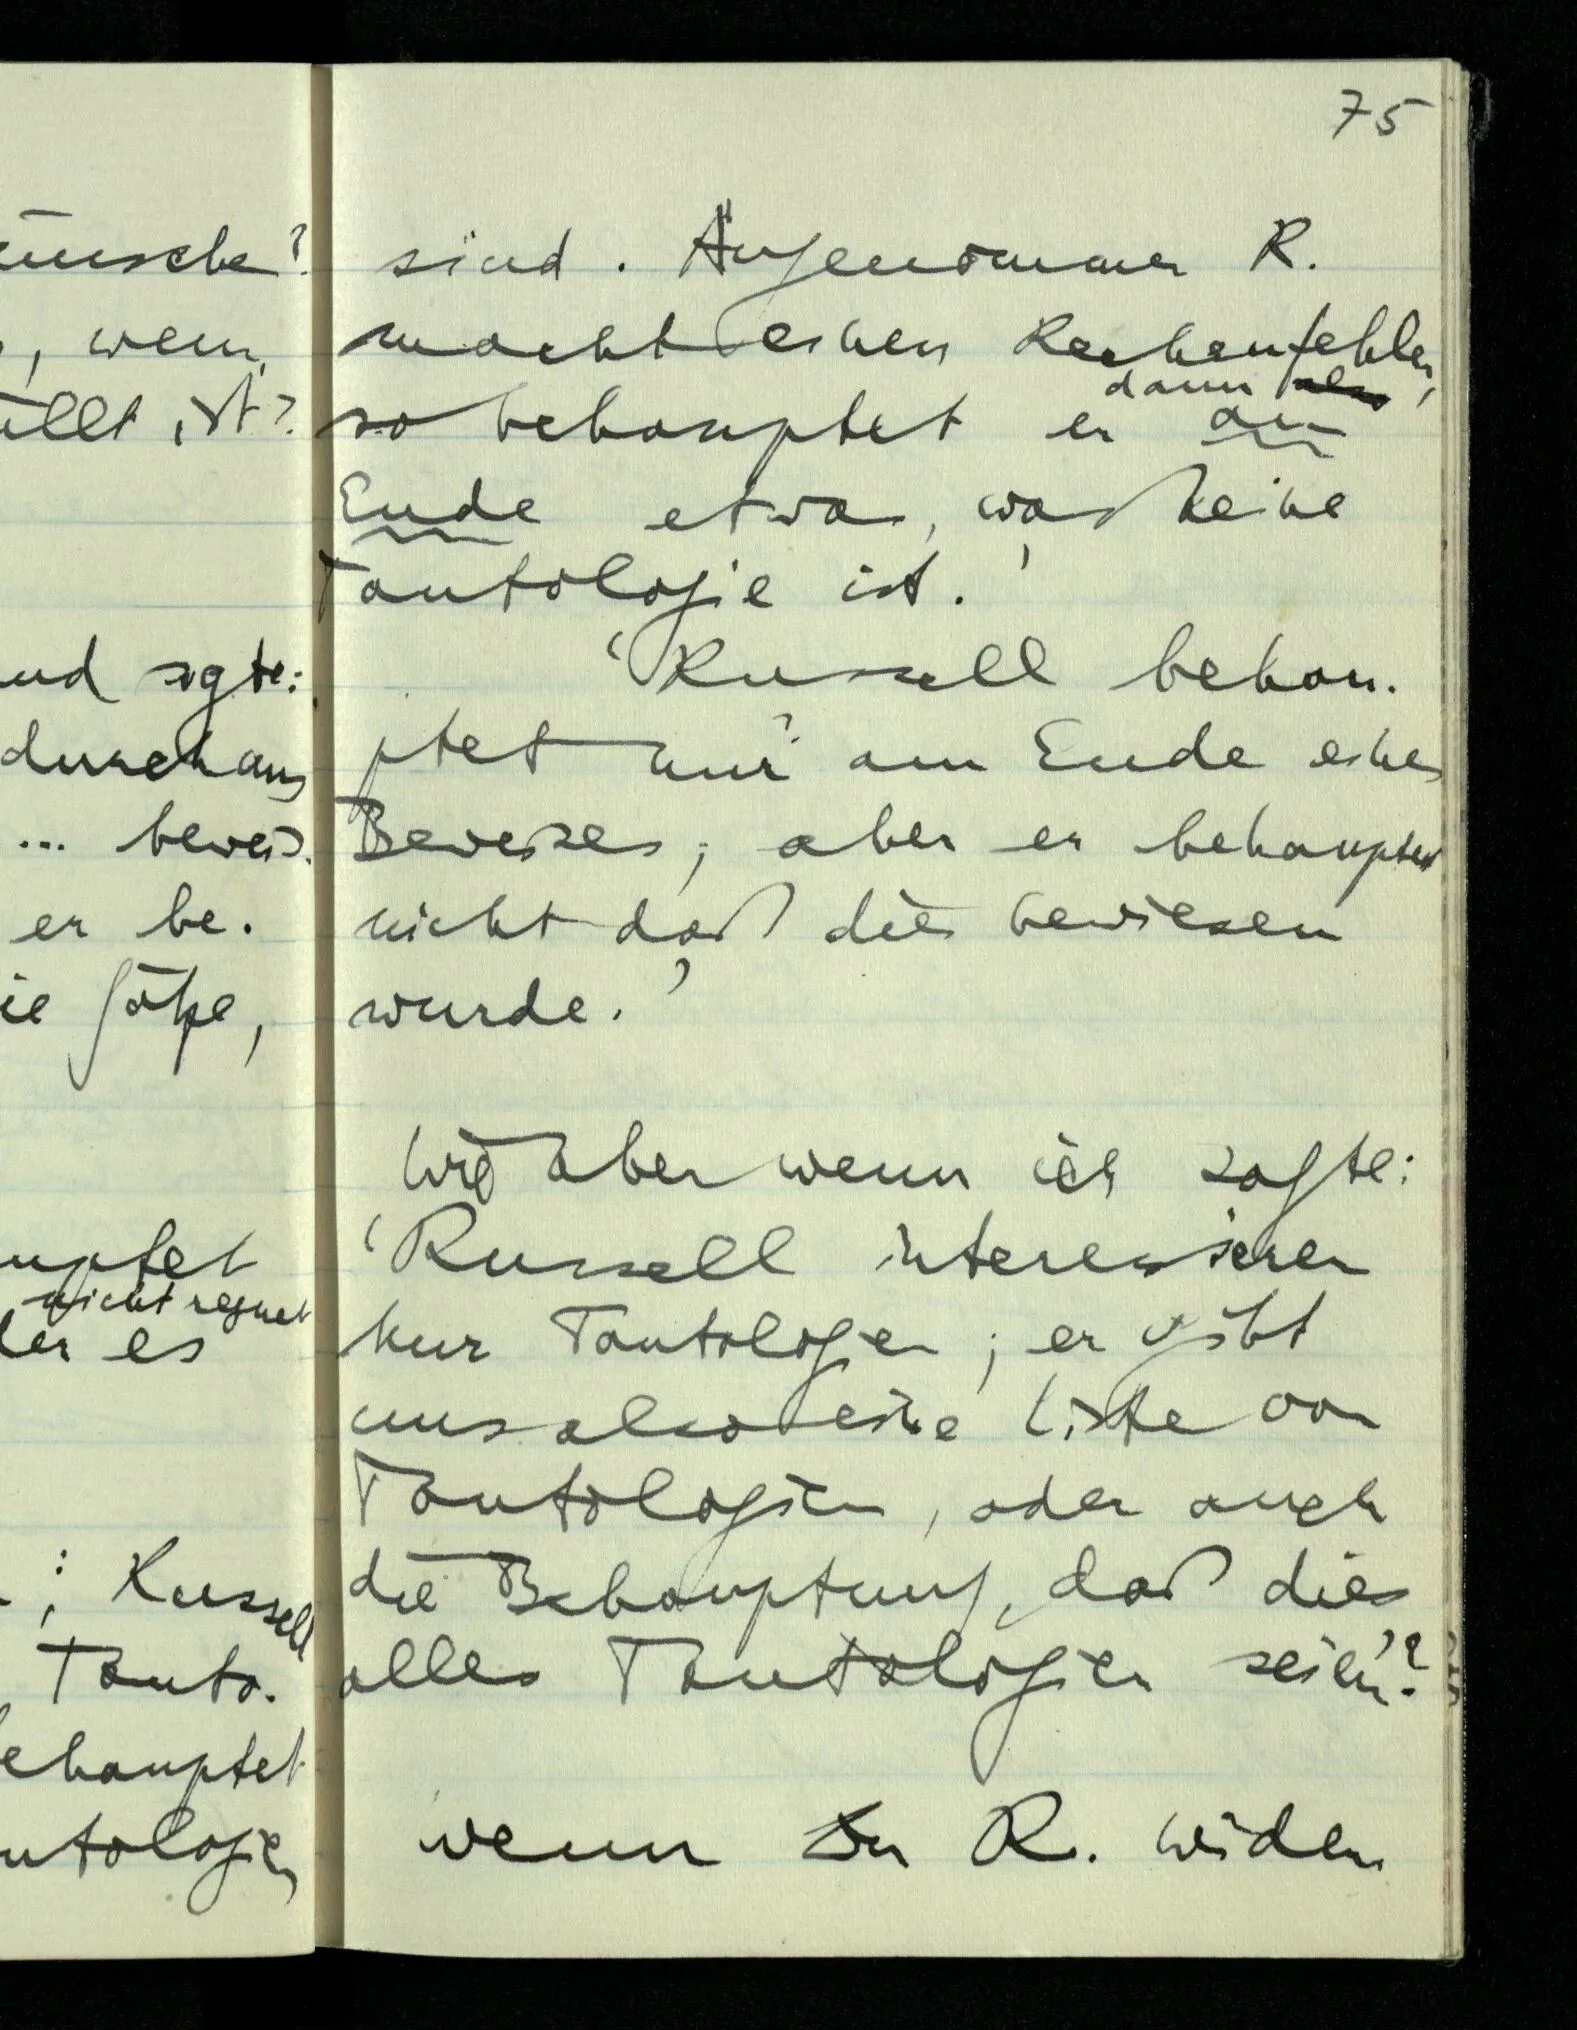 75
ünsche?
, wenn
üllt ist?
und sagte:
durchaus
... bewies.
er be-
ie Sätze,
uptet
nicht regnet
der es
; Russell
Tauto-
behauptet
utologien
sind. Angenommen R.
macht einen Rechenfehler,
dann also
so behauptet er am
Ende etwas, was keine
Tautologie ist.'
'Russell behau-
ptet nur am Ende eines
Beweises; aber er behauptet
nicht daß dies bewiesen
wurde.'
Wie aber wenn ich sagte:
'Russell interessieren
nur Tautologien; er gibt
uns also eine Liste von
Tautologien, oder auch
die Behauptung, daß dies
alles Tautologien seien'?
wenn in R. wider